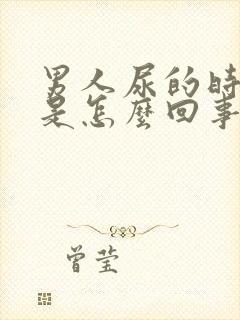 男人尿的時
是怎麼回事
曾莹